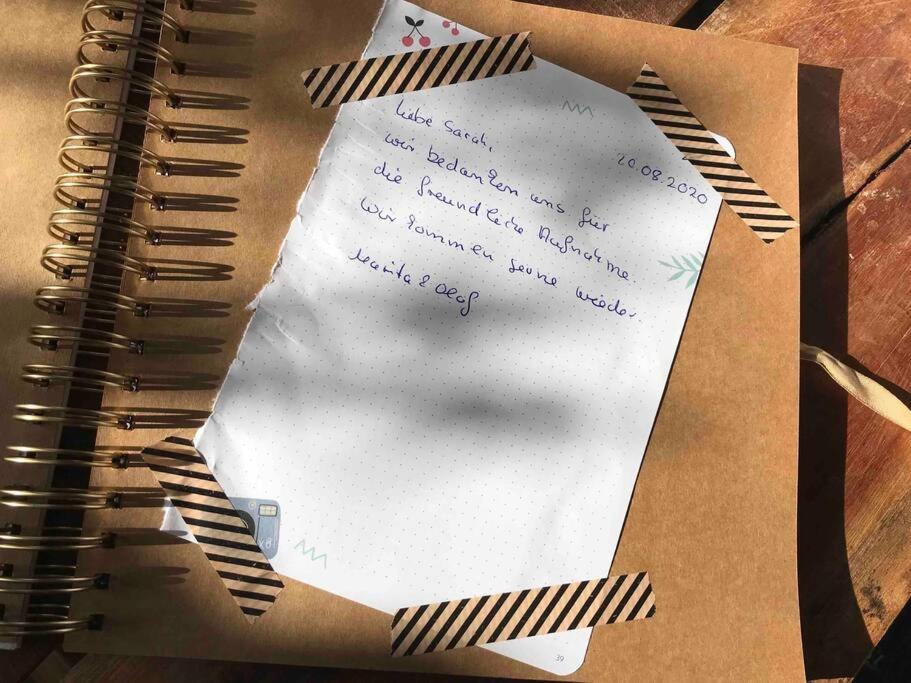 Liebe Sarah,
20.08.2020
wir bedanken uns für
die freundliche Aufnahme.
Wir kommen gerne wieder.
Marita & Olaf
39